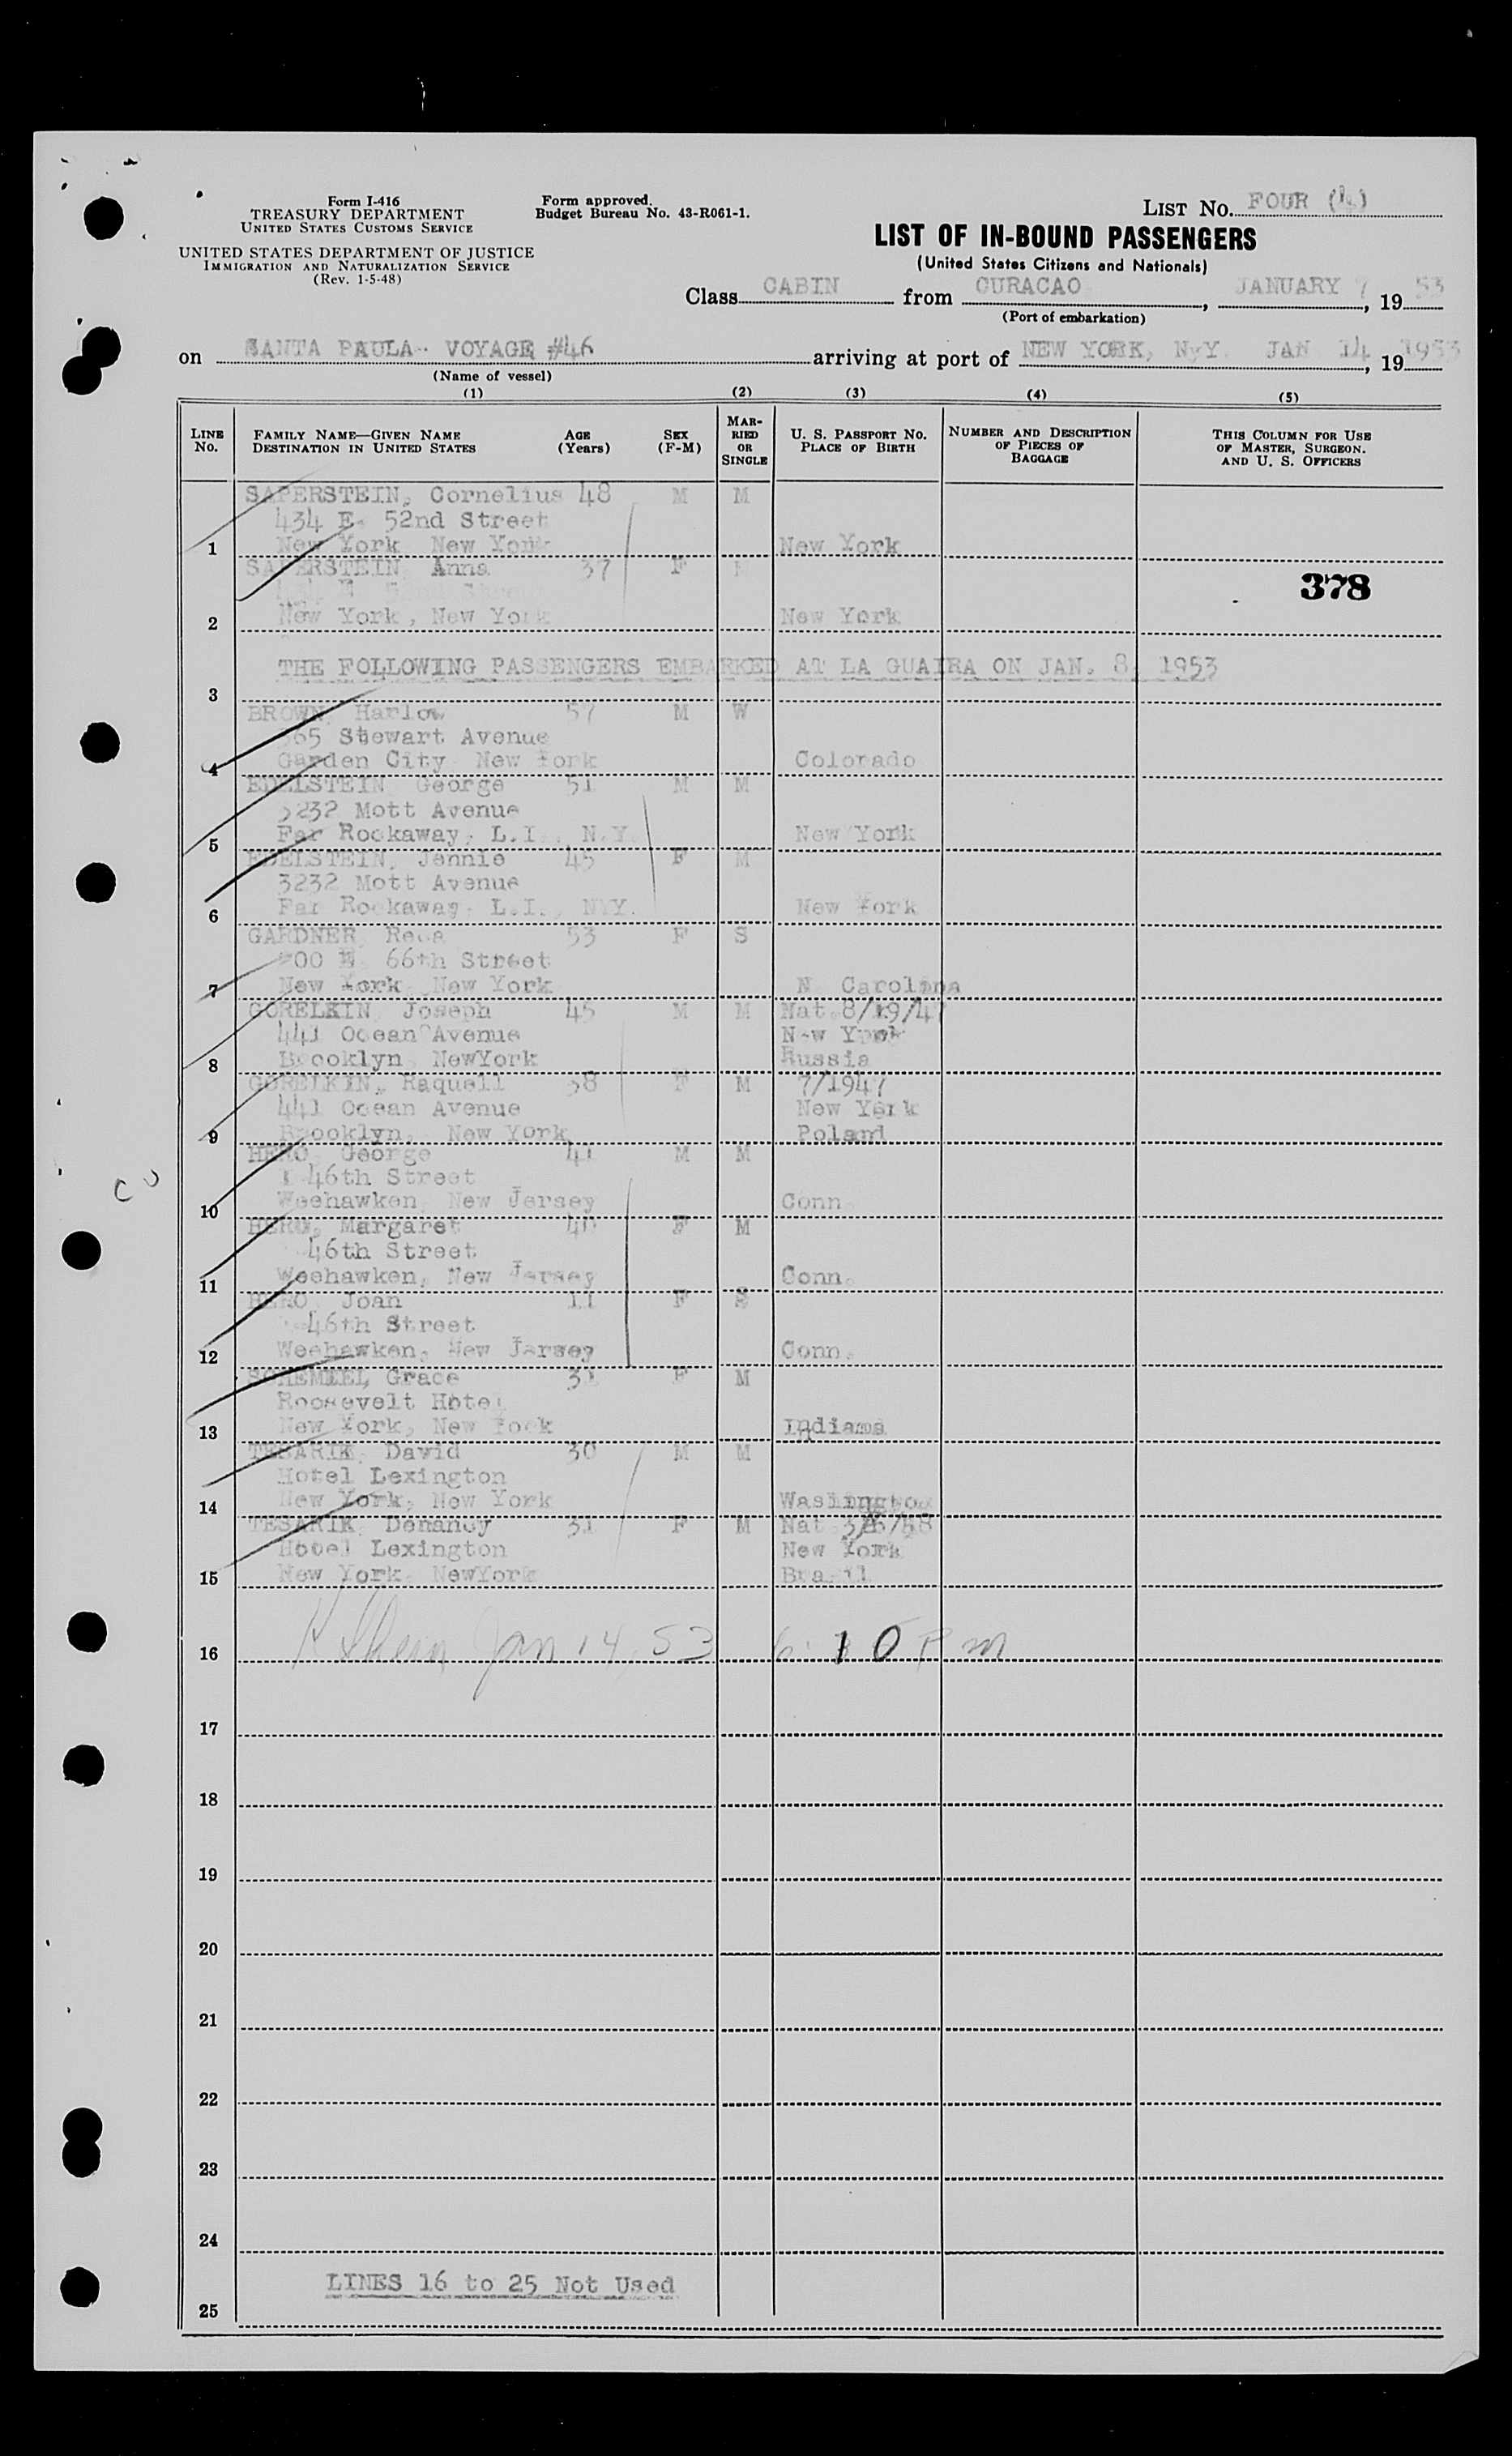 Form I-416
TREASURY DEPARTMENT
UNITED STATES CUSTOMS SERVICE
UNITED STATES DEPARTMENT OF JUSTICE
IMMIGRATION AND NATURALIZATION SERVICE
(Rev. 1-5-48)
Form approved.
Budget Bureau No. 43-R061-1.
LIST No. FOUR (4)
LIST OF IN-BOUND PASSENGERS
(United States Citizens and Nationals)
Class CABIN from CURACAO, JANUARY 7, 19 53
(Port of embarkation)
on SANTA PAULA- VOYAGE #46 arriving at port of NEW YORK, N.Y. JAN 14, 19 1953
(Name of vessel)
(1) (2) (3) (4) (5)
LINE No. FAMILY NAME—GIVEN NAME DESTINATION IN UNITED STATES AGE (Years) SEX (F-M) MARRIED OR SINGLE U. S. PASSPORT No. PLACE OF BIRTH NUMBER AND DESCRIPTION OF PIECES OF BAGGAGE THIS COLUMN FOR USE OF MASTER, SURGEON. AND U. S. OFFICERS
SAPERSTEIN, Cornelius 48 M M
434 E. 52nd Street
1 New York New York New York
SAPERSTEIN, Anna 37 F M
378
2 New York, New York New York
THE FOLLOWING PASSENGERS EMBARKED AT LA GUAIRA ON JAN. 8, 1953
3
BROWN, Harlow 57 M W
Stewart Avenue
4 Garden City New York Colorado
EDELSTEIN George 51 M M
3232 Mott Avenue
5 Far Rockaway, L.I., N.Y. New York
EDELSTEIN, Jennie 45 F M
3232 Mott Avenue
6 Far Rockaway, L.I., N.Y. New York
GARDNER 53 F S
66th Street
7 New York New York N. Carolina
GORELKIN Joseph 45 M M Nat. 8/19/47
441 Ocean Avenue New York
8 Brooklyn NewYork Russia
GORELKIN, Raquell 38 F M 7/1947
441 Ocean Avenue New York
9 Brooklyn, New York Poland
HERO George 41 M M
46th Street
10 Weehawken, New Jersey Conn.
HERO, Margaret 40 F M
46th Street
11 Weehawken, New Jersey Conn.
HERO Joan 11 F S
46th Street
12 Weehawken, New Jersey Conn.
Grace 31 F M
Roosevelt Hotel
13 New York, New York Indiana
TESARIK, David 30 M M
Hotel Lexington
14 New York, New York Washington
TESARIK, 31 F M Nat
Hotel Lexington New York
15 New York NewYork Brazil
16 Jan 14, 53 6:10 Pm
17
18
19
20
21
22
23
24
LINES 16 to 25 Not Used
25